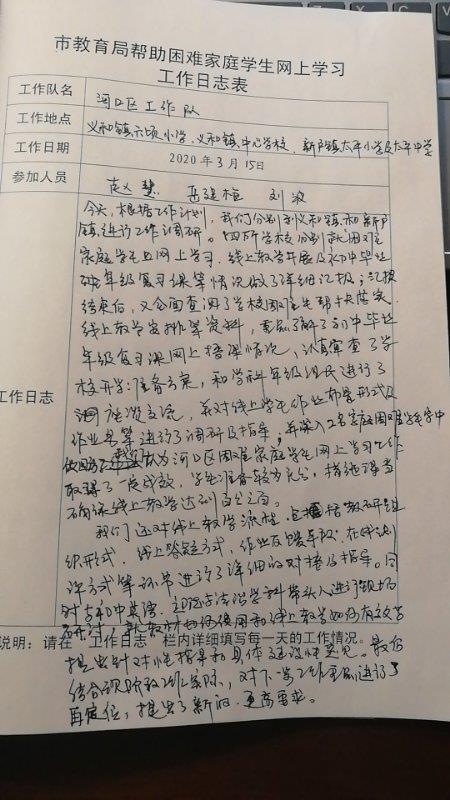 市教育局帮助困难家庭学生网上学习
工作日志表
工作队名 河口区工作队
工作地点 义和镇六顷小学、义和镇中心学校、新户镇太平小学及太平中学
工作日期 2020年3月15日
参加人员 赵慧 岳建桓 刘波
今天，根据工作计划，我们分别到义和镇和新户
镇进行工作调研。四所学校分别就困难
家庭学生网上学习、线上教学开展及初中毕业
班年级复习课等情况做了详细汇报；汇报
结束后，又全面查阅了学校困难生帮扶落实、
线上教学安排等资料，重点了解了初中毕业
年级复习课网上授课情况，认真审查了学
校开学准备方案，和学科年级组长进行了
交流，并对线上学生作业布置形式及
工作日志
作业量等进行了调研及指导，并深入2名家庭困难学生家中
认为河口区困难家庭学生网上学习工作
取得了一定成效，学生准备较为充分，措施得当
确保线上教学达到百分之百。
我们还对线上教学流程，包括教研组
织形式、线上答疑方式、作业反馈车队、在线测
评方式等环节进行了详细的对接及指导。同
时与初中英语、道德与法治学科带头人进行现场
研讨，就教材的使用和线上教学如何有效等
说明：请在“工作日志”栏内详细填写每一天的工作情况。
提出针对性指导和具体建设性意见。最后
结合现阶段工作实际，对下一步工作重点进行了
再定位，提出了新的、更高要求。